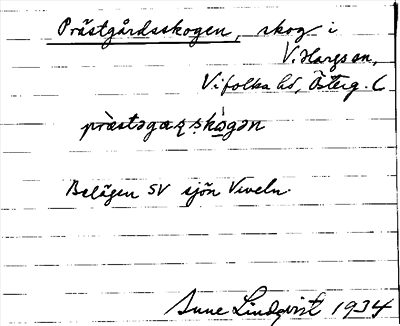 Prästgårdsskogen, skog i
V. Hargs sn,
Vifolka hd, Österg.
Belägen SV sjön Viveln.
Sune Lindqvist 1934